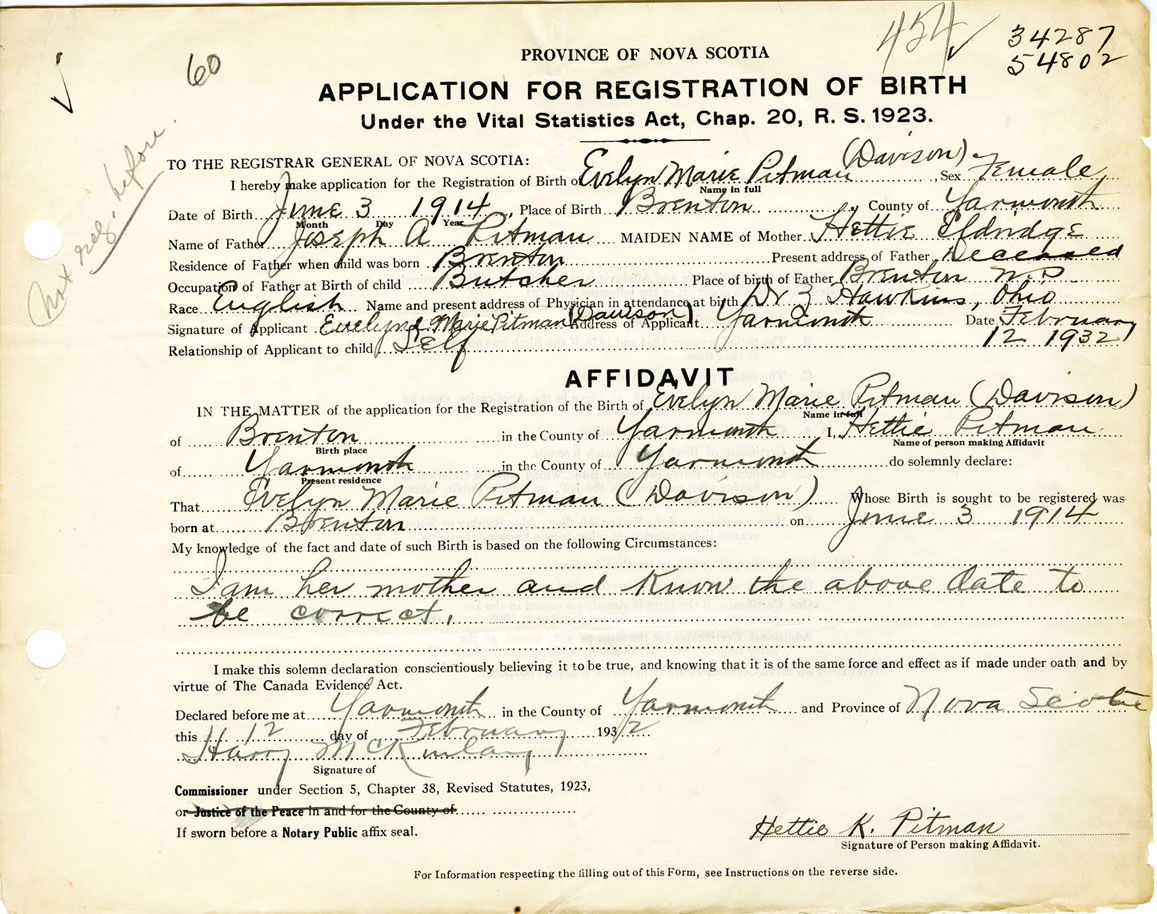 454 34287
60 54802
Not reg. before.
PROVINCE OF NOVA SCOTIA
APPLICATION FOR REGISTRATION OF BIRTH
Under the Vital Statistics Act, Chap. 20, R. S. 1923.
TO THE REGISTRAR GENERAL OF NOVA SCOTIA:
I hereby make application for the Registration of Birth of Evelyn Marie Pitman (Davison), Sex Female
Name in full
Date of Birth June 3 1914, Place of Birth Brenton, County of Yarmouth
Month Day Year
Name of Father Joseph A Pitman MAIDEN NAME of Mother Hettie Eldridge
Residence of Father when child was born Brenton Present address of Father Deceased
Occupation of Father at Birth of child Butcher Place of birth of Father Brenton N.S
Race English Name and present address of Physician in attendance at birth Dr Z Hawkins, Ohio
Signature of Applicant Evelynd Marie Pitman (Davison) Address of Applicant Yarmouth Date February
Relationship of Applicant to child Self 12 1932
AFFIDAVIT
IN THE MATTER of the application for the Registration of the Birth of Evelyn Marie Pitman (Davison)
Name in full
of Brenton in the County of Yarmouth I, Hettie Pitman
Birth place Name of person making Affidavit
of Yarmouth in the County of Yarmouth do solemnly declare:
Present residence
That Evelyn Marie Pitman (Davison) Whose Birth is sought to be registered was
born at Brenton on June 3 1914
My knowledge of the fact and date of such Birth is based on the following Circumstances:
I am her mother and know the above date to
be correct.
I make this solemn declaration conscientiously believing it to be true, and knowing that it is of the same force and effect as if made under oath and by
virtue of The Canada Evidence Act.
Declared before me at Yarmouth in the County of Yarmouth and Province of Nova Scotia
this 12 day of February 1932
Harry McKinlay
Signature of
Commissioner under Section 5, Chapter 38, Revised Statutes, 1923,
or Justice of the Peace in and for the County of
If sworn before a Notary Public affix seal.
Hettie K. Pitman
Signature of Person making Affidavit.
For Information respecting the filling out of this Form, see Instructions on the reverse side.